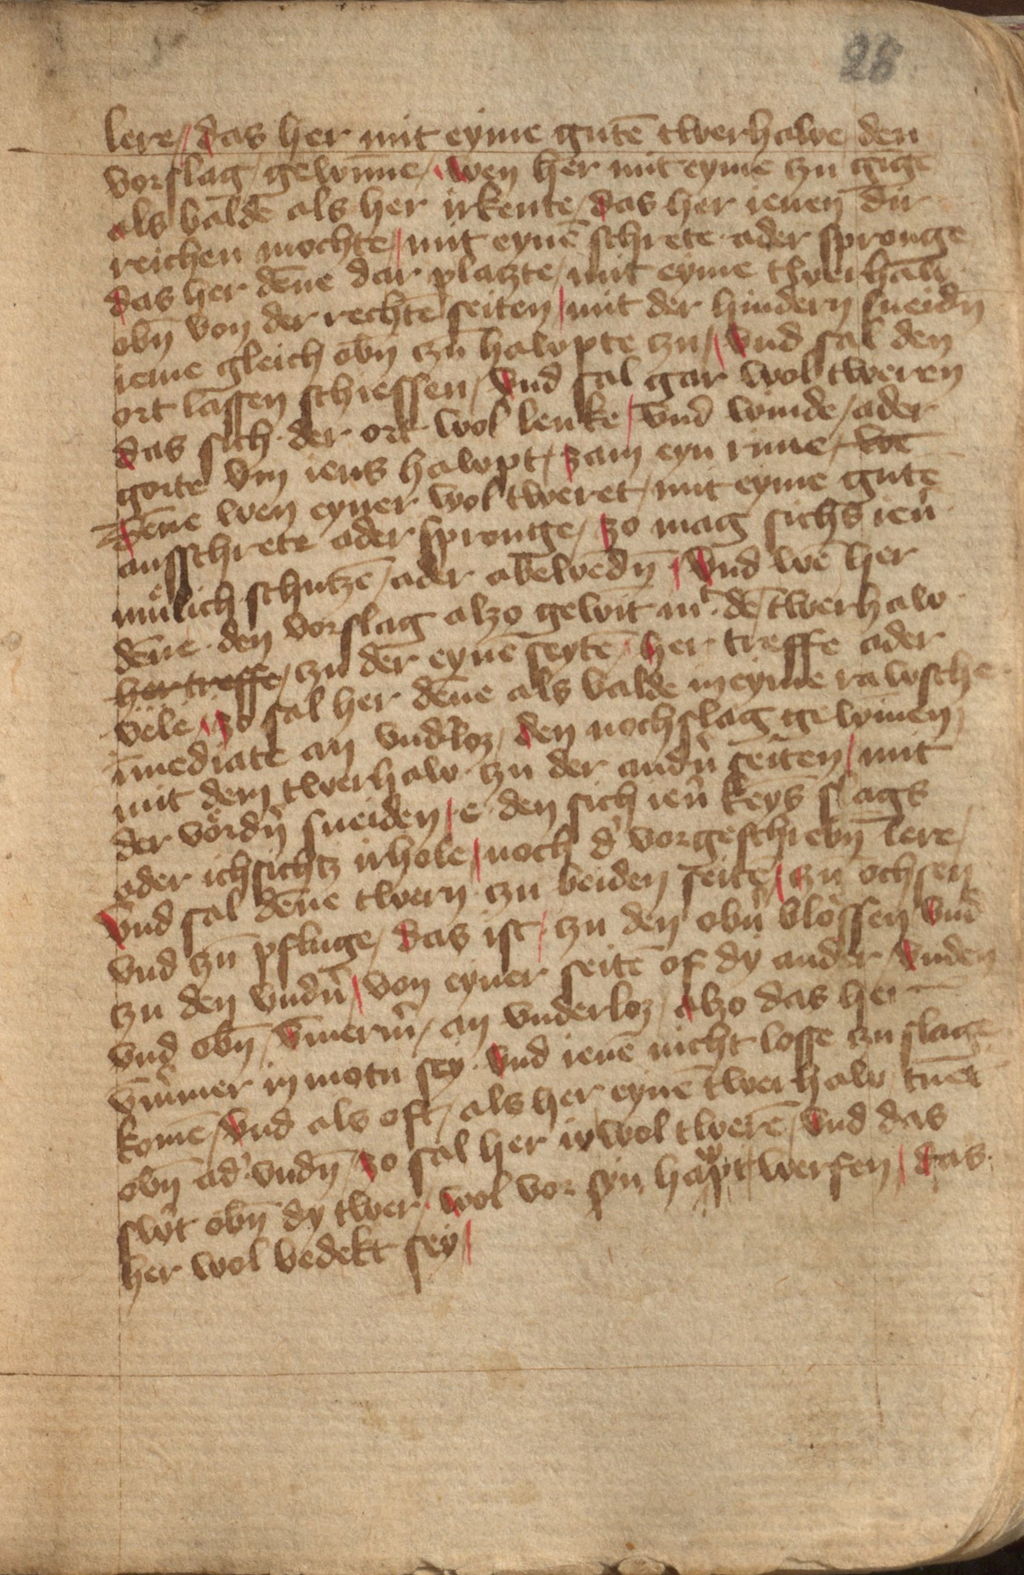 28
lere / das her mit eyme gutē twerhawe den
vorslag / gewīne / wen her mit eyme zu gige
als balde als her irkente / das her ienen dir
reichen mochte / mit eynē schrete ader spronge
das her dēne dar platzte / mit eyme twerhaw
obn̄ von der rechtē seiten / mit der hindern sneidn̄
ieme gleich obn̄ zū hawpte zu / Vnd sal den
ort lassen schiessen / vnd sal gar wol tweren
das sich der ort wol lenke / vnd winde / ader
gorte vm iens hawpt / zam eyn rime wē
Dēne wen eyner wol tweret / mit eyme gutē
ausschrete ader spronge / zo mag sichs ien̄
mülich schutzē / ader abewēdn̄ / Vnd wē her
dēne den vorslag alzo gewīt mt dē twerhaw
her treffe / zu der eynē seytē / her treffe ader
vele / zo sal her dēne als balde in eyme rawsche
īmediate an vnd'loz / den nochslag gewīnen
mit dem twerhaw zu der andn̄ seiten / mit
der vördn̄ sneiden / e den sich ien̄ keyns slags
oder ichsichtz irhole / noch d' vorgeschrebn̄ lere /
Vnd sal dēne twern zu beiden seitē / zū ochsen
vnd zū pfluge / das ist / zu den obn̄ blössen vnd
zu den vndn̄ / von eyner seitē of dy ander / vnden
vnd obn̄ / vmerm̄ / an vnderloz / alzo das her
vm̄mer in motu sey / vnd ienē nicht losse zu slage
komē / Vnd als oft / als her eynē twerhaw tuet
obn̄ ad' vndn̄ / zo sal her io wol twerē / vnd das
swt obn̄ dy twer / wol vor syn hawpt werfen / das
her wol bedekt sey /